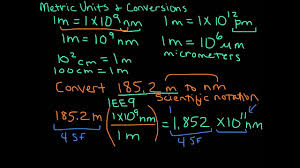 Metric Units & Conversions
1m = 1×10⁹ nm
1m = 1×10¹² pm
1m = 10⁹ nm
1m = 10⁶ µm
micrometers
10² cm = 1m
100cm = 1m
Convert 185.2 m to nm
Scientific notation
1EE9
185.2m (1×10⁹ nm / 1m) = 1.852 ×10¹¹ nm
4 SF
4 SF